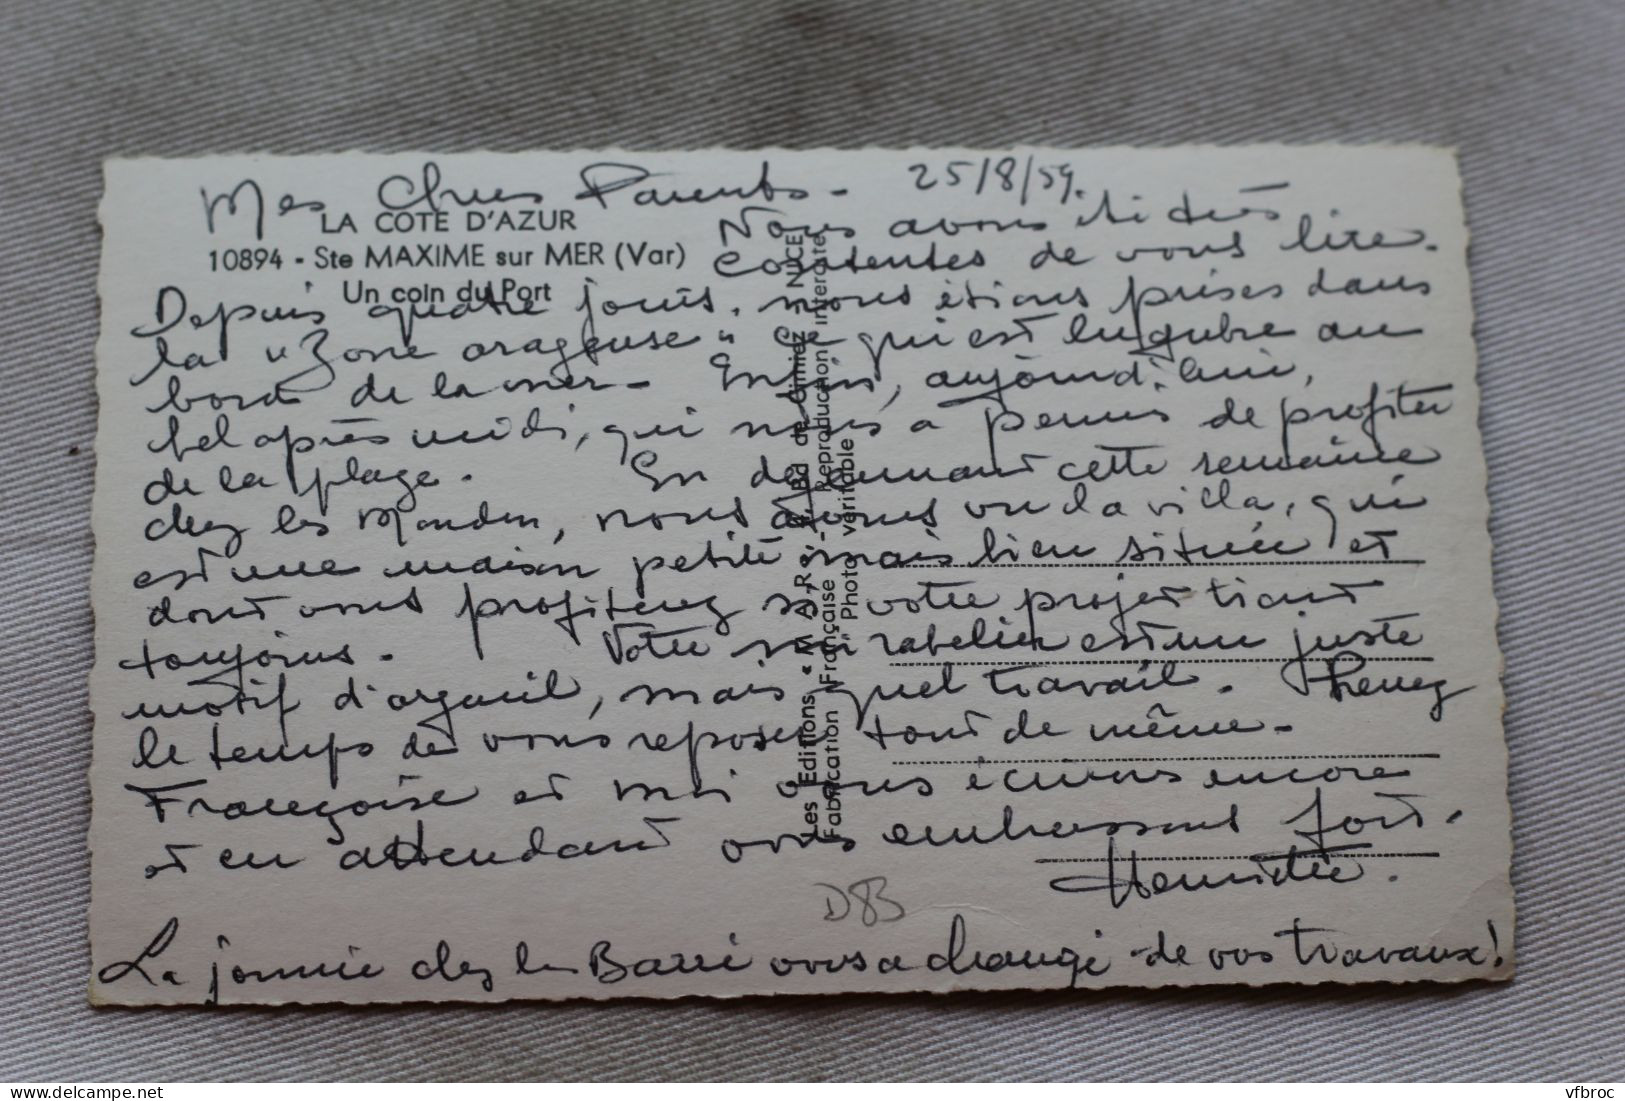 Mes Chers Parents - 25/8/59.
LA COTE D'AZUR
10894 - Ste MAXIME sur MER (Var)
Un coin du Port
Nous avons été très
contentes de vous lire.
Depuis quatre jours, nous étions prises dans
la "Zone orageuse" Ce qui est lugubre au
bord de la mer - Enfin, aujourd'hui,
bel après midi, qui nous a permis de profiter
de la plage. En déjeunant cette semaine
chez les, nous avons vu la villa, qui
est une maison petite mais bien située et
dont vous profiterez si votre projet tient
toujours. Votre est un juste
motif d'orgueil, mais quel travail. Prenez
le temps de vous reposer tout de même -
Françoise et moi vous écrirons encore
et en attendant vous embrassons fort.
Henriette.
D83
La journée chez les Barré vous a changé de vos travaux!
Les Editions « M A R » - Bd de Cimiez - NICE
Fabrication Française - Reproduction interdite
Photo véritable
vfbroc
Delcampe.net